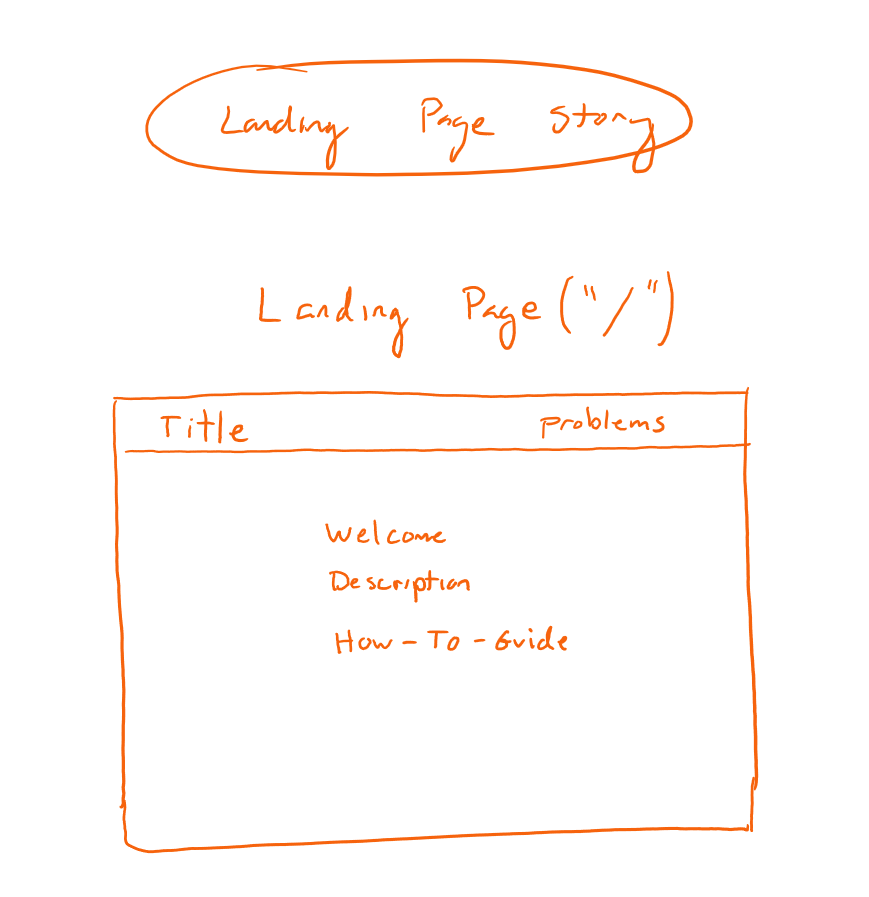 Landing Page Story
Landing Page ("/")
Title Problems
Welcome
Description
How-To-Guide